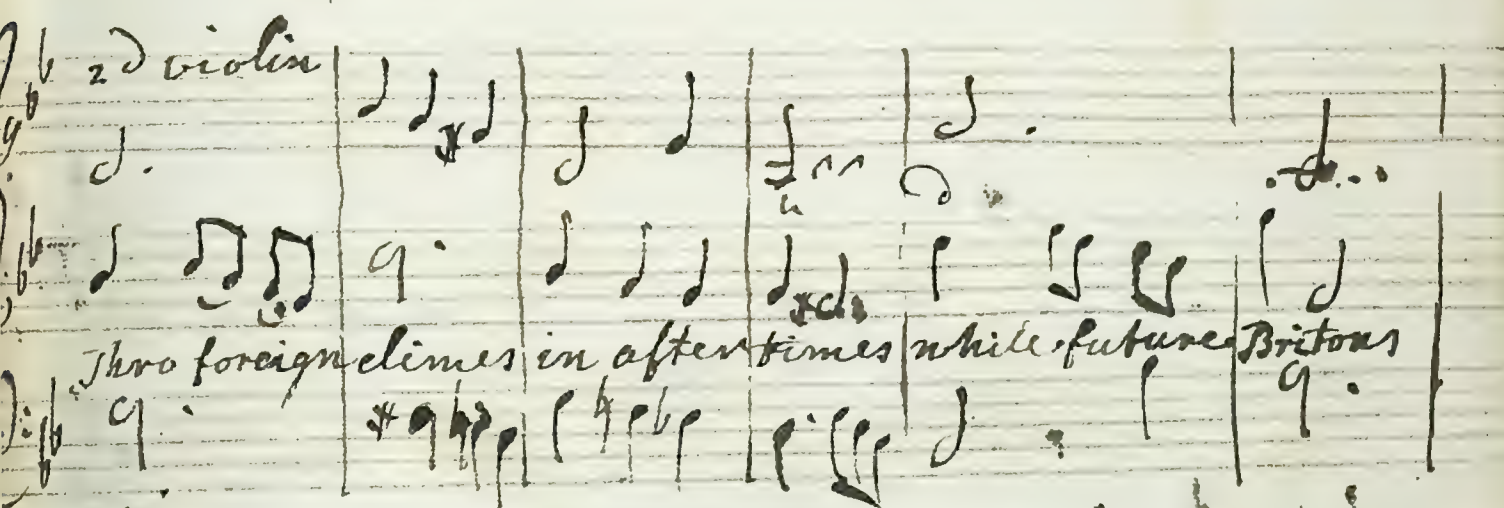 2d violin
Thro foreign climes in after times while future Britons